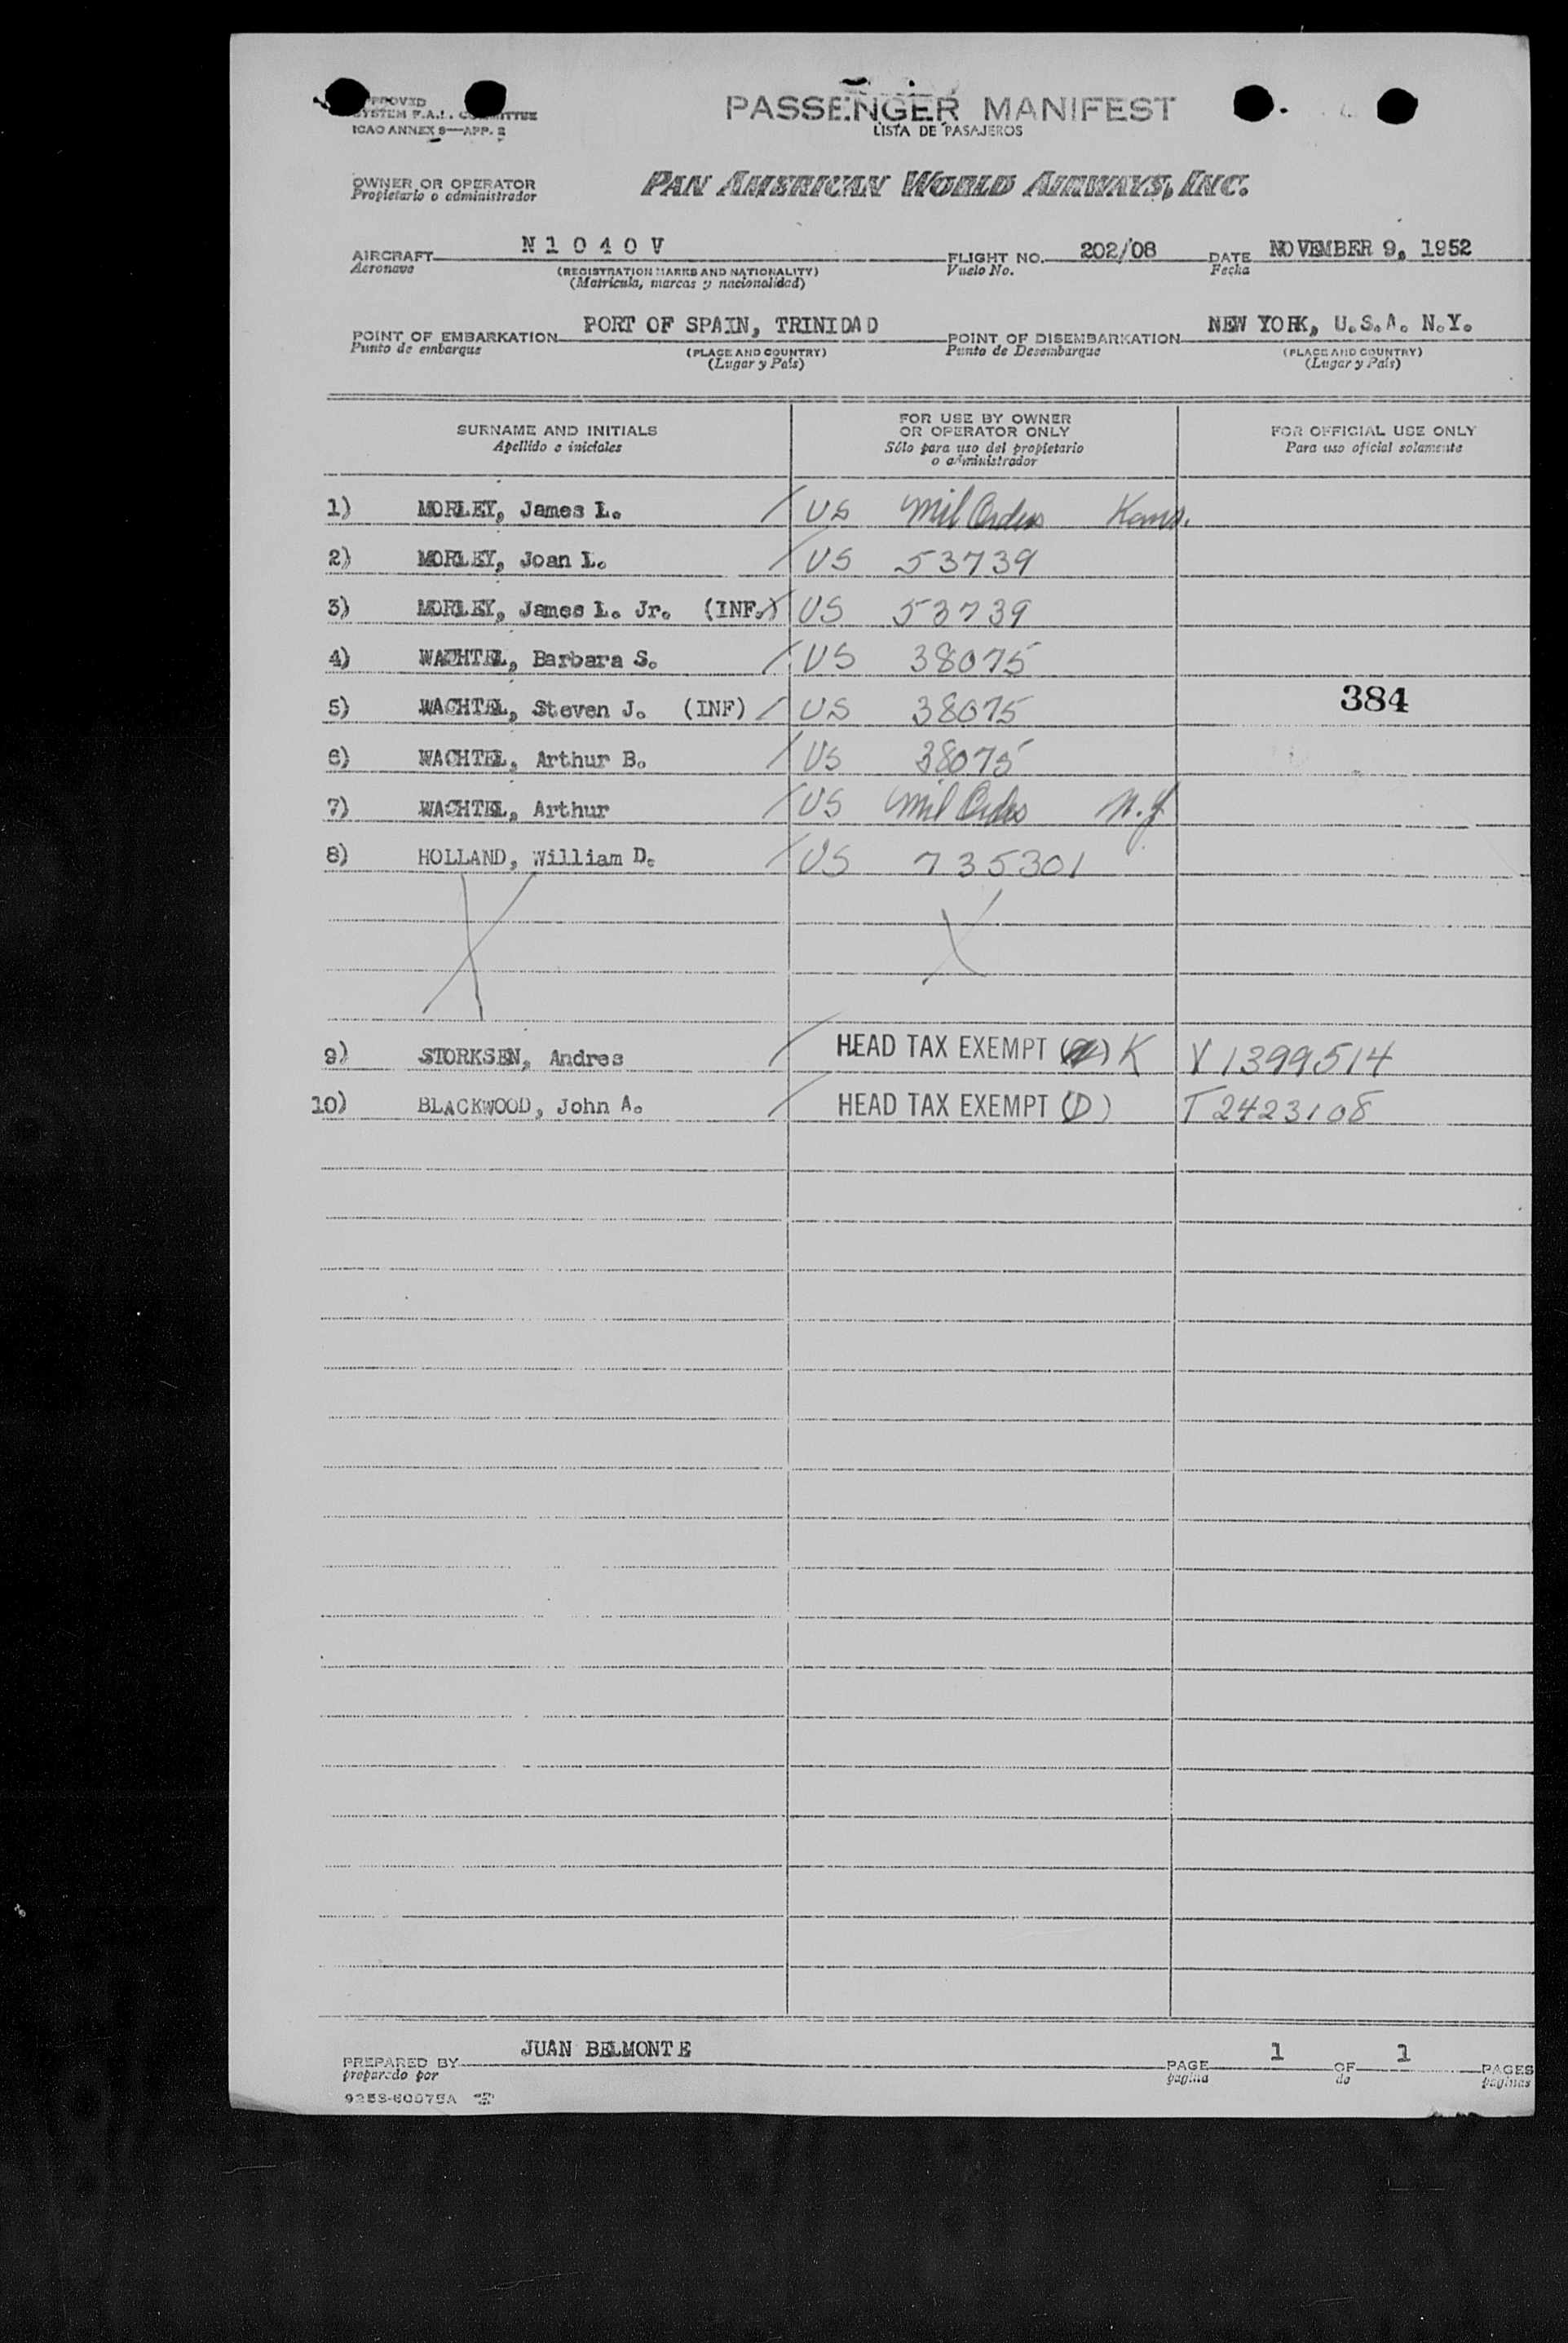 PASSENGER MANIFEST
LISTA DE PASAJEROS
SYSTEM F.A.L. COMMITTEE
ICAO ANNEX 9—APP. 2
OWNER OR OPERATOR
Propietario o administrador
PAN AMERICAN WORLD AIRWAYS, INC.
AIRCRAFT N 1 0 4 0 V FLIGHT NO. 202/08 DATE NOVEMBER 9, 1952
Aeronave (REGISTRATION MARKS AND NATIONALITY) Vuelo No. Fecha
(Matrícula, marcas y nacionalidad)
POINT OF EMBARKATION PORT OF SPAIN, TRINIDAD POINT OF DISEMBARKATION NEW YORK, U.S.A. N.Y.
Punto de embarque (PLACE AND COUNTRY) Punto de Desembarque (PLACE AND COUNTRY)
(Lugar y País) (Lugar y País)
SURNAME AND INITIALS FOR USE BY OWNER OR OPERATOR ONLY FOR OFFICIAL USE ONLY
Apellido e iniciales Sólo para uso del propietario o administrador Para uso oficial solamente
1) MORLEY, James L. / US Mil Orders Kans.
2) MORLEY, Joan L. / US 53739
3) MORLEY, James L. Jr. (INF.) / US 53739
4) WACHTEL, Barbara S. / US 38075
5) WACHTEL, Steven J. (INF) / US 38075 384
6) WACHTEL, Arthur B. / US 38075
7) WACHTEL, Arthur / US Mil Orders N.Y
8) HOLLAND, William D. / US 735301
X X
9) STORKSEN, Andres / HEAD TAX EXEMPT ( ) K V1399514
10) BLACKWOOD, John A. / HEAD TAX EXEMPT (D) T2423108
PREPARED BY JUAN BELMONTE PAGE 1 OF 1 PAGES
preparado por pagina de paginas